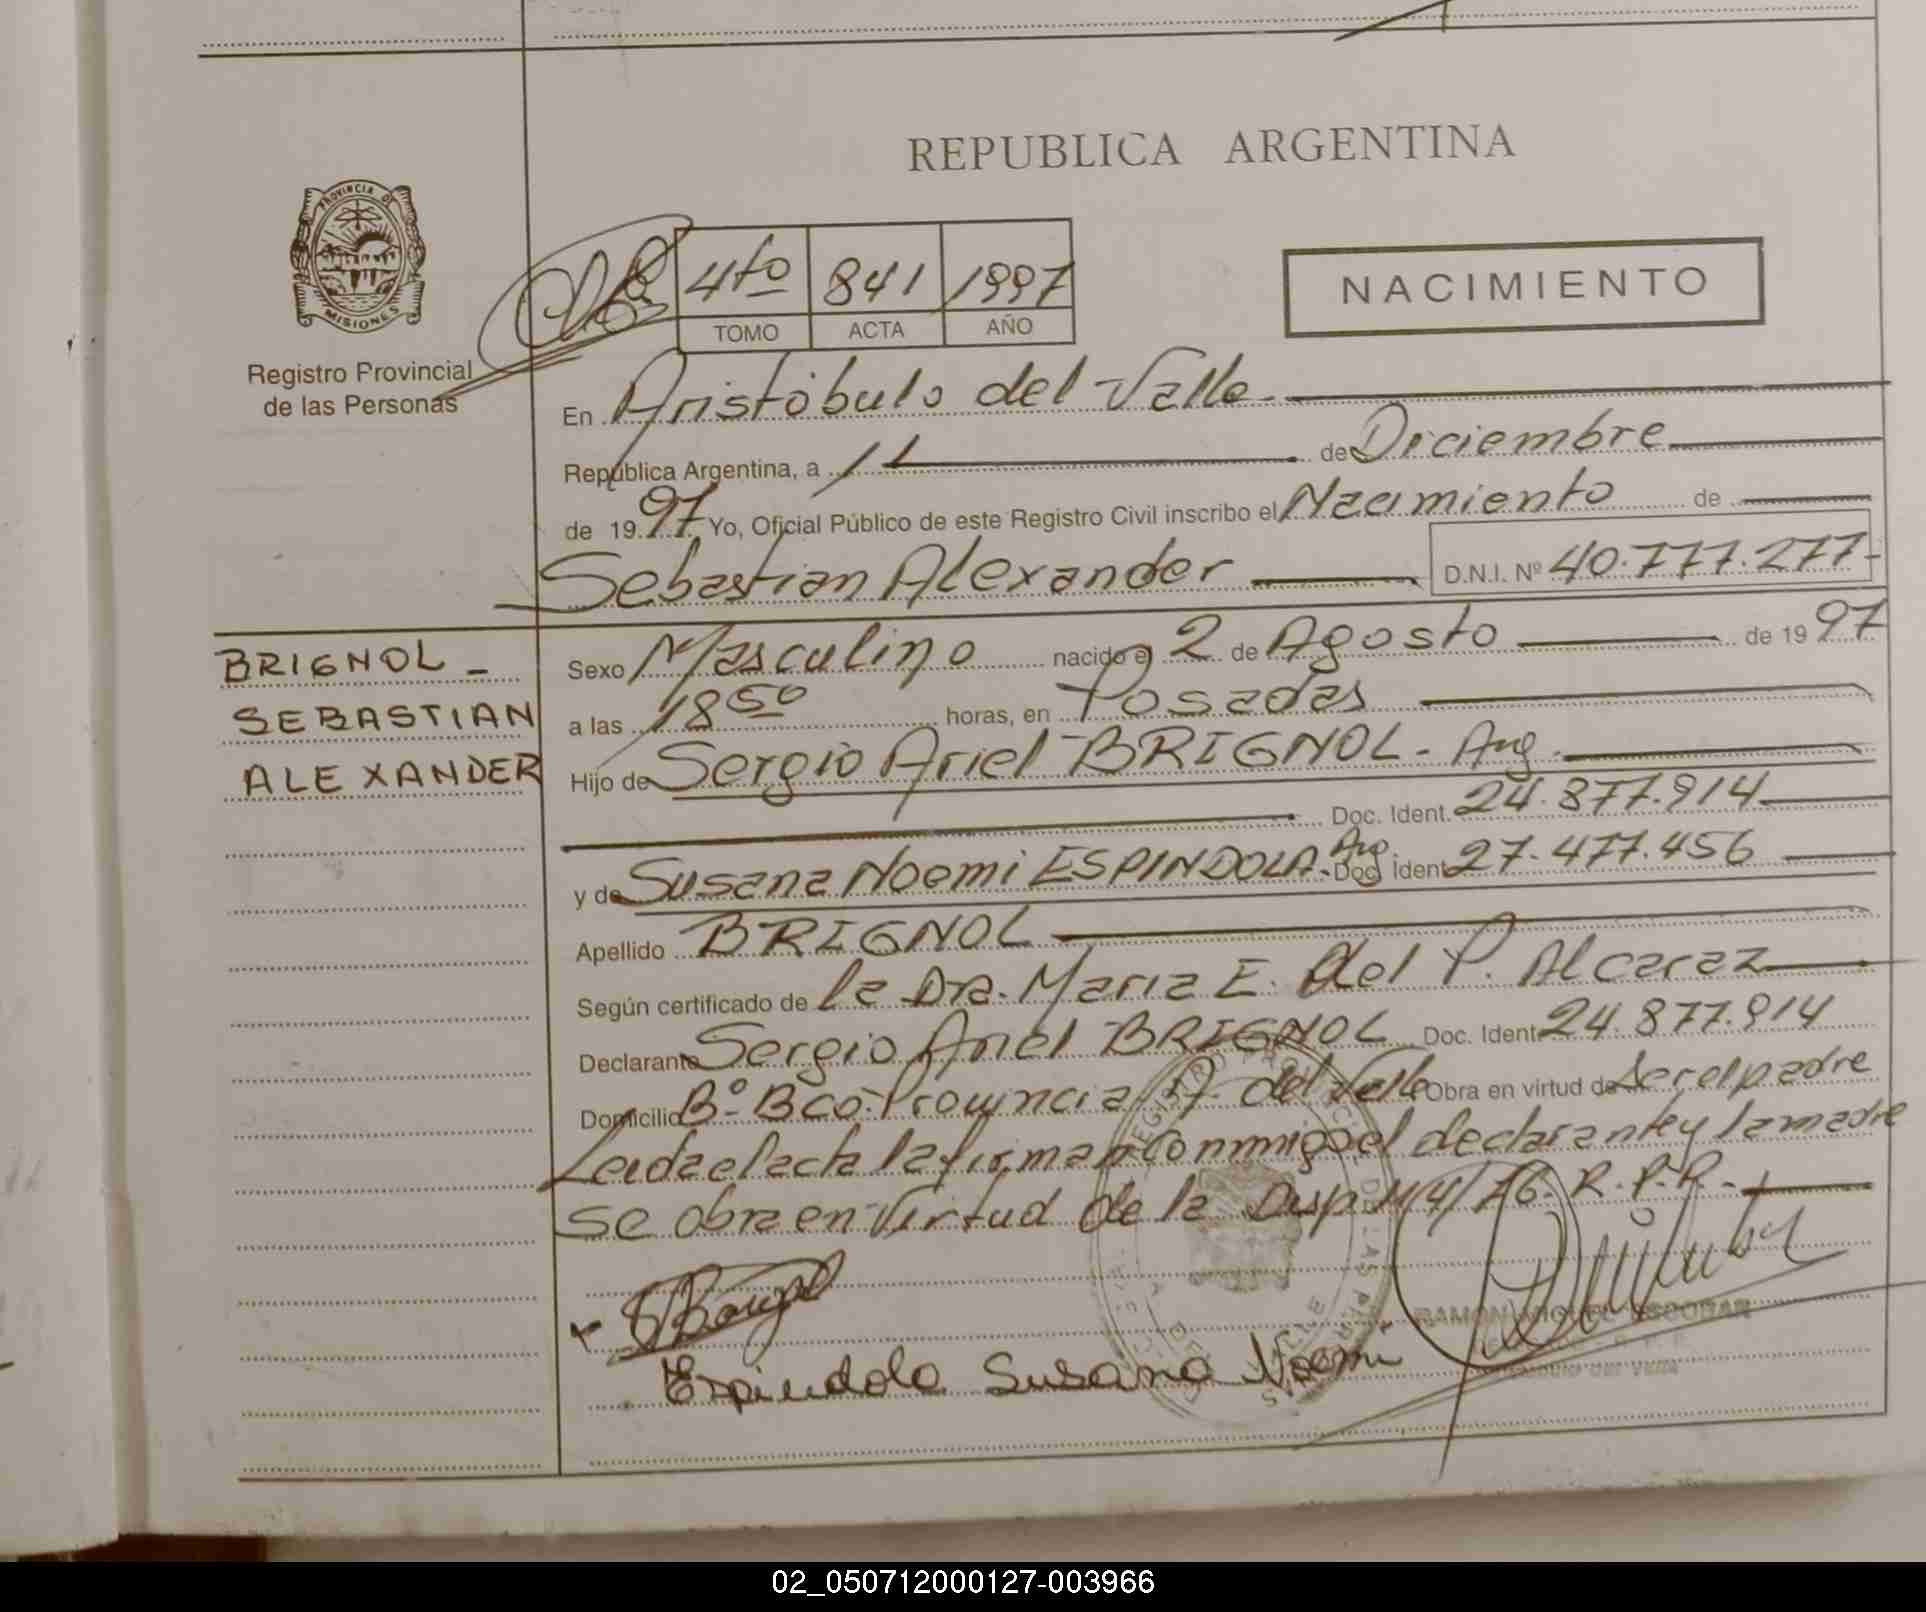 REPUBLICA ARGENTINA
PROVINCIA DE
MISIONES
Registro Provincial
de las Personas
4to 841 1997
TOMO ACTA AÑO
NACIMIENTO
En Aristóbulo del Valle
República Argentina, a 11 de Diciembre
de 1997 Yo, Oficial Público de este Registro Civil inscribo el Nacimiento de
Sebastian Alexander D.N.I. Nº 40.777.277-
BRIGNOL -
SEBASTIAN
ALEXANDER
Sexo Masculino nacido el 2 de Agosto de 1997
a las 18 50 horas, en Posadas
Hijo de Sergio Ariel BRIGNOL - Arg.
Doc. Ident. 24.877.914
y de Susana Noemi ESPINDOLA. Arg. Doc. Ident 27.477.456
Apellido BRIGNOL
Según certificado de la Dra. Maria E. del P. Alcaraz
Declarante Sergio Ariel BRIGNOL Doc. Ident 24.877.914
Domicilio Bº. Bco. Provincia A. del Valle Obra en virtud de ser el padre
Leida el acta la firman conmigo el declarante y la madre
se obra en virtud de la Disp. 14/76. R.P.P.
RAMON MIGUEL ESCOBAR
Espindola Susana Noemi
02_050712000127-003966